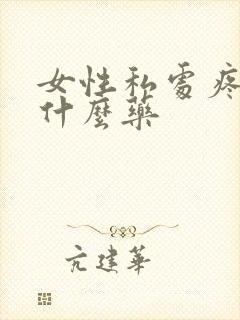 女性私處疼
什麼藥
亢建華